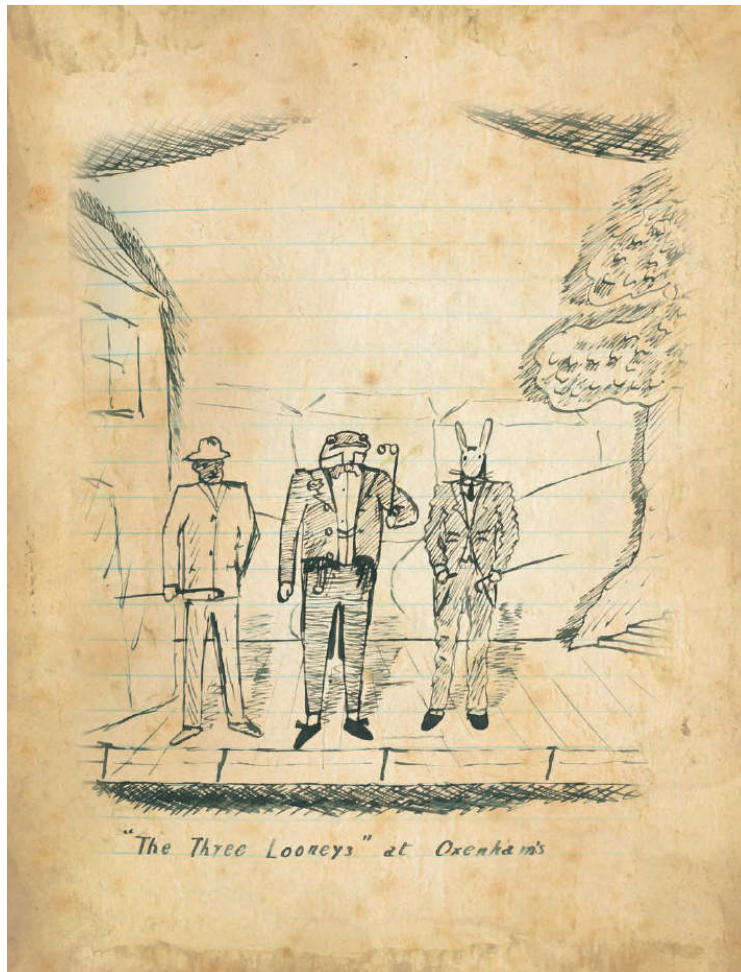 "The Three Looneys" at Oxenham's